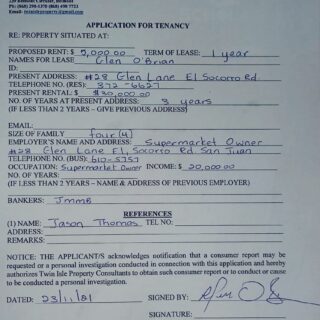 Ph: (868) 290-1370 (868) 498-7723
APPLICATION FOR TENANCY
RE: PROPERTY SITUATED AT:
PROPOSED RENT: $ 5,000.00 TERM OF LEASE: 1 year
NAMES FOR LEASE: Glen O'Brian
ID:
PRESENT ADDRESS: #28 Glen Lane El Socorro Rd
TELEPHONE NO. (RES): 872-6627
PRESENT RENTAL: $ $30,000.00
NO. OF YEARS AT PRESENT ADDRESS: 3 years
(IF LESS THAN 2 YEARS – GIVE PREVIOUS ADDRESS)
EMAIL:
SIZE OF FAMILY four (4)
EMPLOYER'S NAME AND ADDRESS: Supermarket Owner
#28 Glen Lane El, Socorro Rd San Juan
TELEPHONE NO. (BUS): 610-5757
OCCUPATION: Supermarket Owner INCOME: $ 20,000.00
NO. OF YEARS:
(IF LESS THAN 2 YEARS – NAME & ADDRESS OF PREVIOUS EMPLOYER)
BANKERS: Jmmb
REFERENCES
(1) NAME: Jason Thomas TEL NO:
ADDRESS:
REMARKS:
NOTICE: THE APPLICANT/S acknowledges notification that a consumer report may be
requested or a personal investigation conducted in connection with this application and hereby
authorizes Twin Isle Property Consultants to obtain such consumer report or to conduct or cause
to be conducted a personal investigation.
DATED: 23/11/21 SIGNED BY:
SIGNATURE: